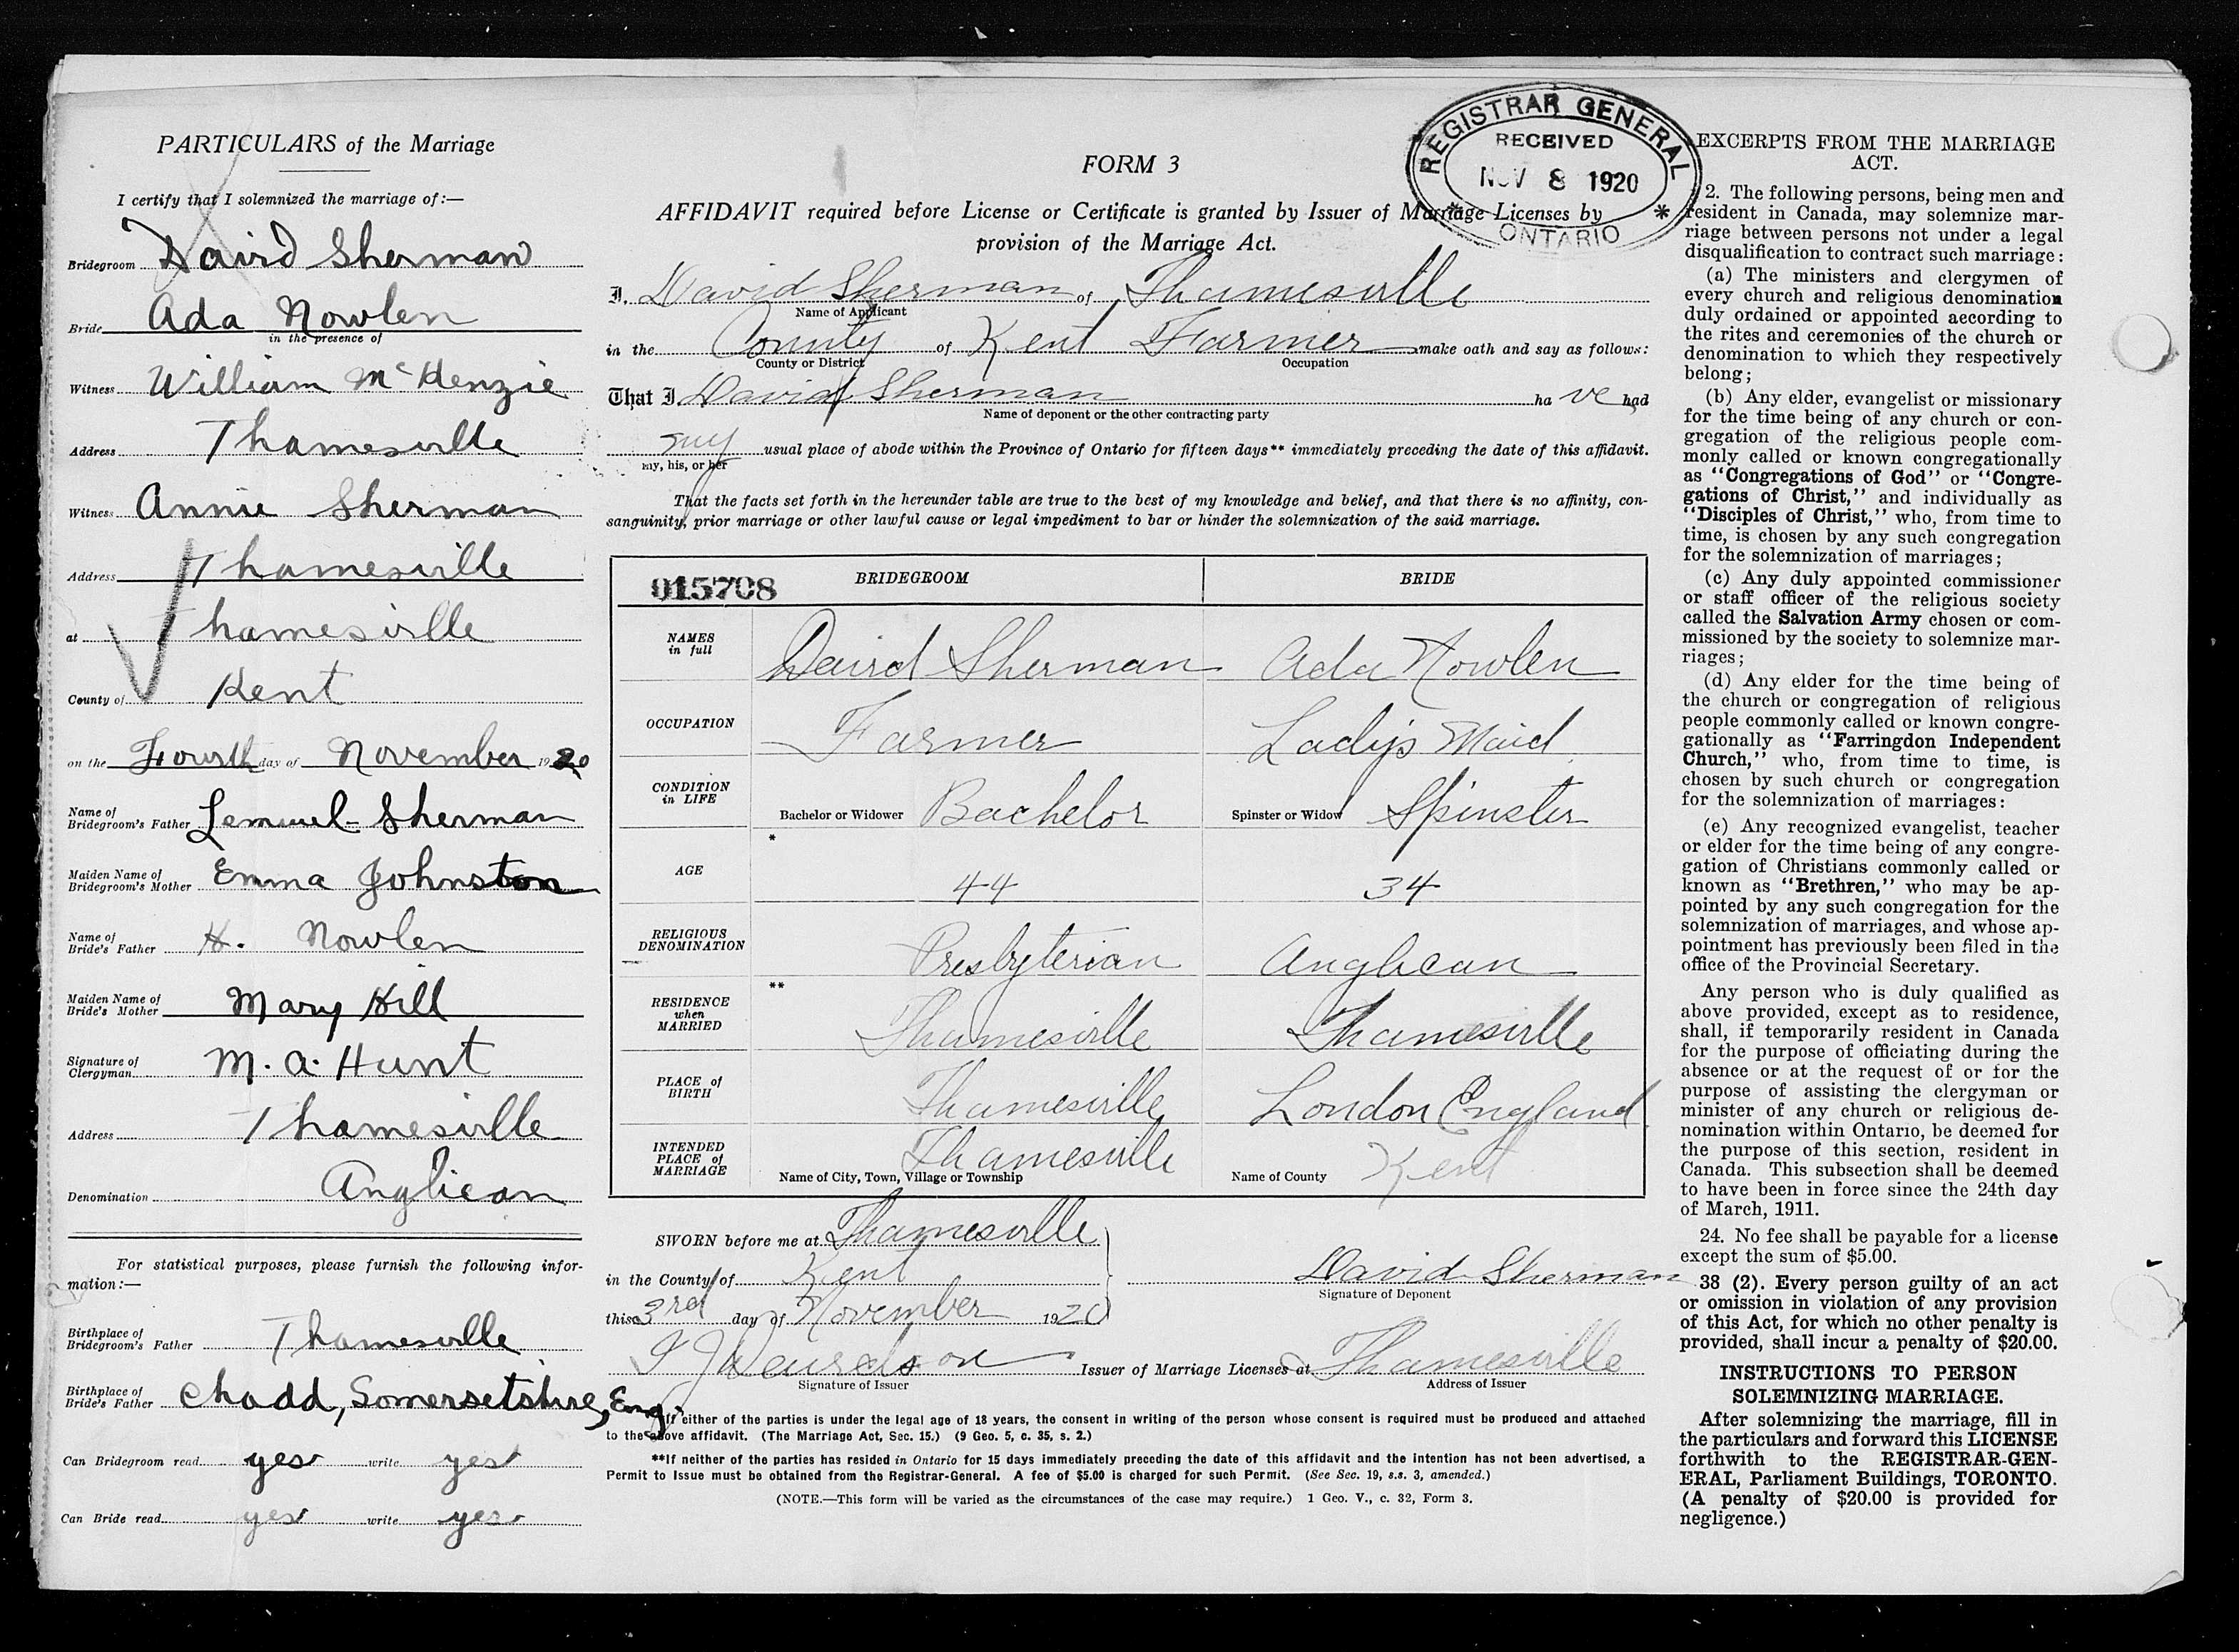 PARTICULARS of the Marriage
I certify that I solemnized the marriage of:—
Bridegroom David Sherman
Bride Ada Nowlen
in the presence of
Witness William McKenzie
Address Thamesville
Witness Annie Sherman
Address Thamesville
at Thamesville
County of Kent
on the Fourth day of November 1920
Name of
Bridegroom's Father Lemuel Sherman
Maiden Name of
Bridegroom's Mother Emma Johnston
Name of
Bride's Father H. Nowlen
Maiden Name of
Bride's Mother Mary Hill
Signature of
Clergyman M. A. Hunt
Address Thamesville
Denomination Anglican
For statistical purposes, please furnish the following infor-
mation:—
Birthplace of
Bridegroom's Father Thamesville
Birthplace of
Bride's Father Chadd, Somersetshire, Eng.
Can Bridegroom read yes write yes
Can Bride read yes write yes
REGISTRAR GENERAL
RECEIVED
NOV 8 1920
* *
ONTARIO
FORM 3
AFFIDAVIT required before License or Certificate is granted by Issuer of Marriage Licenses by
provision of the Marriage Act.
I, David Sherman of Thamesville
Name of Applicant
in the County of Kent Farmer make oath and say as follows:
County or District Occupation
That I David Sherman ha ve had
Name of deponent or the other contracting party
my usual place of abode within the Province of Ontario for fifteen days** immediately preceding the date of this affidavit.
my, his, or her
That the facts set forth in the hereunder table are true to the best of my knowledge and belief, and that there is no affinity, con-
sanguinity, prior marriage or other lawful cause or legal impediment to bar or hinder the solemnization of the said marriage.
015708 BRIDEGROOM BRIDE
NAMES
in full David Sherman Ada Nowlen
OCCUPATION Farmer Lady's Maid
CONDITION
in LIFE Bachelor or Widower Bachelor Spinster or Widow Spinster
*
AGE 44 34
RELIGIOUS
DENOMINATION Presbyterian Anglican
**
RESIDENCE
when
MARRIED Thamesville Thamesville
PLACE of
BIRTH Thamesville London England
INTENDED
PLACE of
MARRIAGE Name of City, Town, Village or Township Thamesville Name of County Kent
SWORN before me at Thamesville
in the County of Kent David Sherman
Signature of Deponent
this 3rd day of November 1920
Issuer of Marriage Licenses at Thamesville
Signature of Issuer Address of Issuer
*If either of the parties is under the legal age of 18 years, the consent in writing of the person whose consent is required must be produced and attached
to the above affidavit. (The Marriage Act, Sec. 15.) (9 Geo. 5, c. 35, s. 2.)
**If neither of the parties has resided in Ontario for 15 days immediately preceding the date of this affidavit and the intention has not been advertised, a
Permit to Issue must be obtained from the Registrar-General. A fee of $5.00 is charged for such Permit. (See Sec. 19, s.s. 3, amended.)
(NOTE.—This form will be varied as the circumstances of the case may require.) 1 Geo. V., c. 32, Form 3.
EXCERPTS FROM THE MARRIAGE
ACT.
2. The following persons, being men and
resident in Canada, may solemnize mar-
riage between persons not under a legal
disqualification to contract such marriage:
(a) The ministers and clergymen of
every church and religious denomination
duly ordained or appointed according to
the rites and ceremonies of the church or
denomination to which they respectively
belong;
(b) Any elder, evangelist or missionary
for the time being of any church or con-
gregation of the religious people com-
monly called or known congregationally
as "Congregations of God" or "Congre-
gations of Christ," and individually as
"Disciples of Christ," who, from time to
time, is chosen by any such congregation
for the solemnization of marriages;
(c) Any duly appointed commissioner
or staff officer of the religious society
called the Salvation Army chosen or com-
missioned by the society to solemnize mar-
riages;
(d) Any elder for the time being of
the church or congregation of religious
people commonly called or known congre-
gationally as "Farringdon Independent
Church," who, from time to time, is
chosen by such church or congregation
for the solemnization of marriages:
(e) Any recognized evangelist, teacher
or elder for the time being of any congre-
gation of Christians commonly called or
known as "Brethren," who may be ap-
pointed by any such congregation for the
solemnization of marriages, and whose ap-
pointment has previously been filed in the
office of the Provincial Secretary.
Any person who is duly qualified as
above provided, except as to residence,
shall, if temporarily resident in Canada
for the purpose of officiating during the
absence or at the request of or for the
purpose of assisting the clergyman or
minister of any church or religious de-
nomination within Ontario, be deemed for
the purpose of this section, resident in
Canada. This subsection shall be deemed
to have been in force since the 24th day
of March, 1911.
24. No fee shall be payable for a license
except the sum of $5.00.
38 (2). Every person guilty of an act
or omission in violation of any provision
of this Act, for which no other penalty is
provided, shall incur a penalty of $20.00.
INSTRUCTIONS TO PERSON
SOLEMNIZING MARRIAGE.
After solemnizing the marriage, fill in
the particulars and forward this LICENSE
forthwith to the REGISTRAR-GEN-
ERAL, Parliament Buildings, TORONTO.
(A penalty of $20.00 is provided for
negligence.)